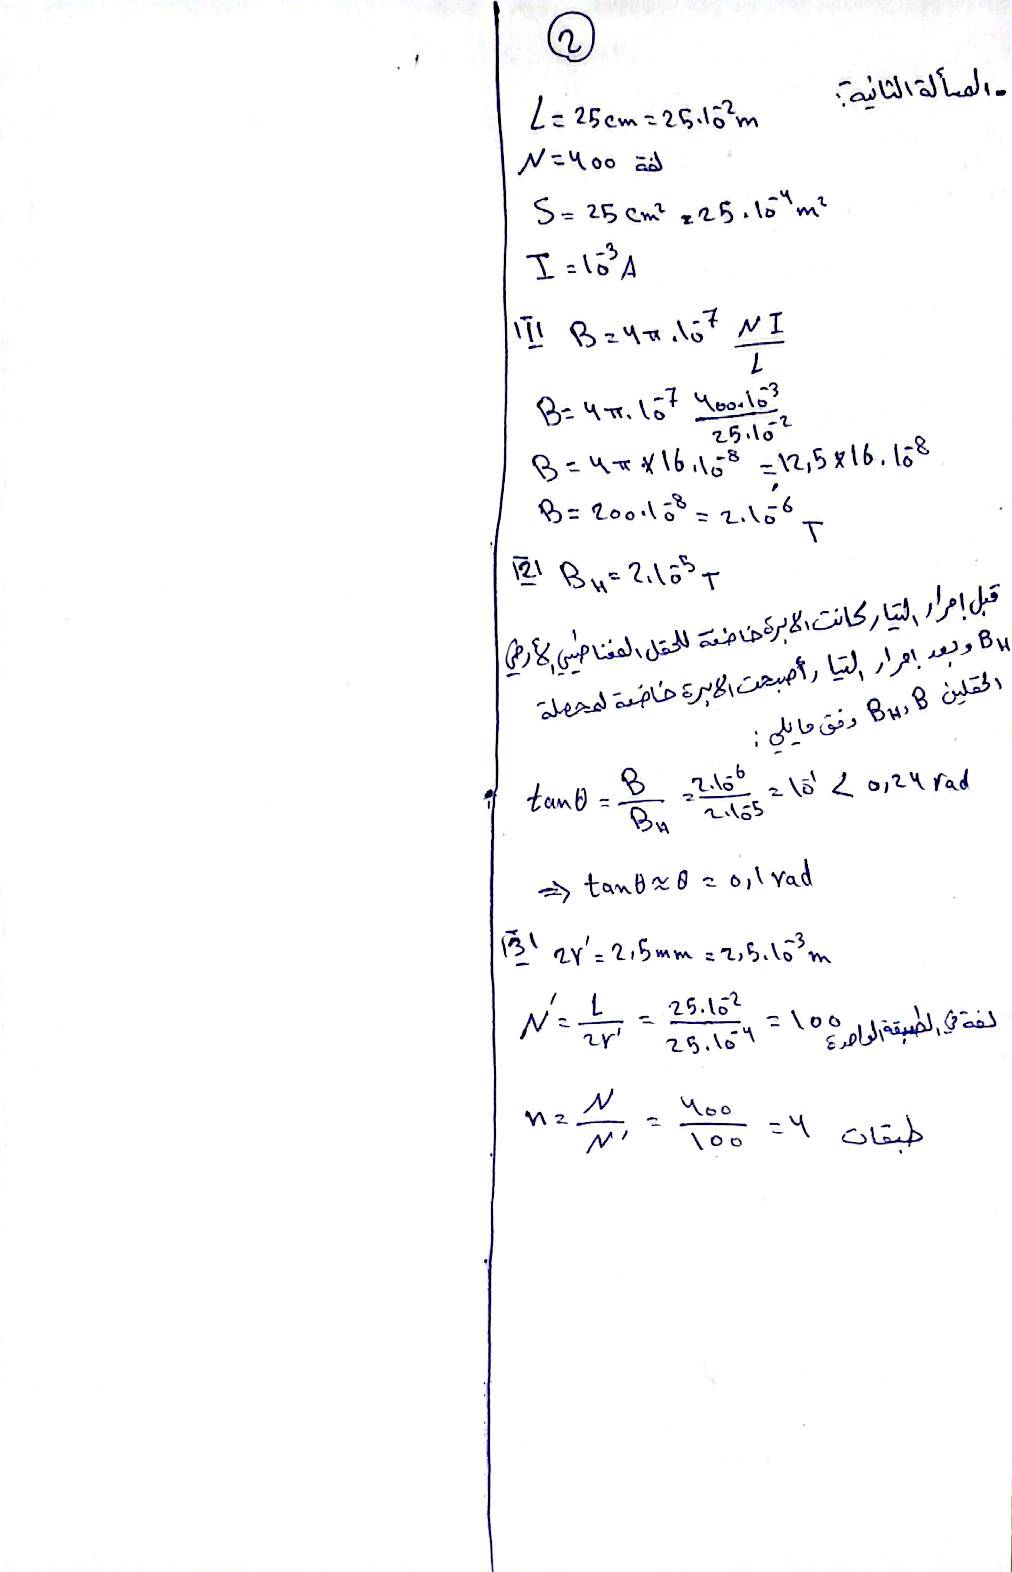 2
المسألة الثانية:
L = 25 cm = 25.10⁻² m
N = 400 لفة
S = 25 cm² = 25.10⁻⁴ m²
I = 10⁻³ A
|1| B = 4π.10⁻⁷ NI/L
B = 4π.10⁻⁷ 400.10⁻³/25.10⁻²
B = 4π × 16.10⁻⁸ = 12,5 × 16.10⁻⁸
B = 200.10⁻⁸ = 2.10⁻⁶ T
|2| B_H = 2.10⁻⁵ T
قبل إمرار التيار كانت الابرة خاضعة للحقل المغناطيسي الأرضي
B_H وبعد امرار التيار أصبحت الابرة خاضعة لمحصلة
الحقلين B_H, B وفق مايلي:
tanθ = B/B_H = 2.10⁻⁶/2.10⁻⁵ = 10⁻¹ < 0,24 rad
⇒ tanθ ≈ θ = 0,1 rad
|3| 2r' = 2,5 mm = 2,5.10⁻³ m
N' = L/2r' = 25.10⁻²/25.10⁻⁴ = 100 لفة في الطبقة الواحدة
n = N/N' = 400/100 = 4 طبقات